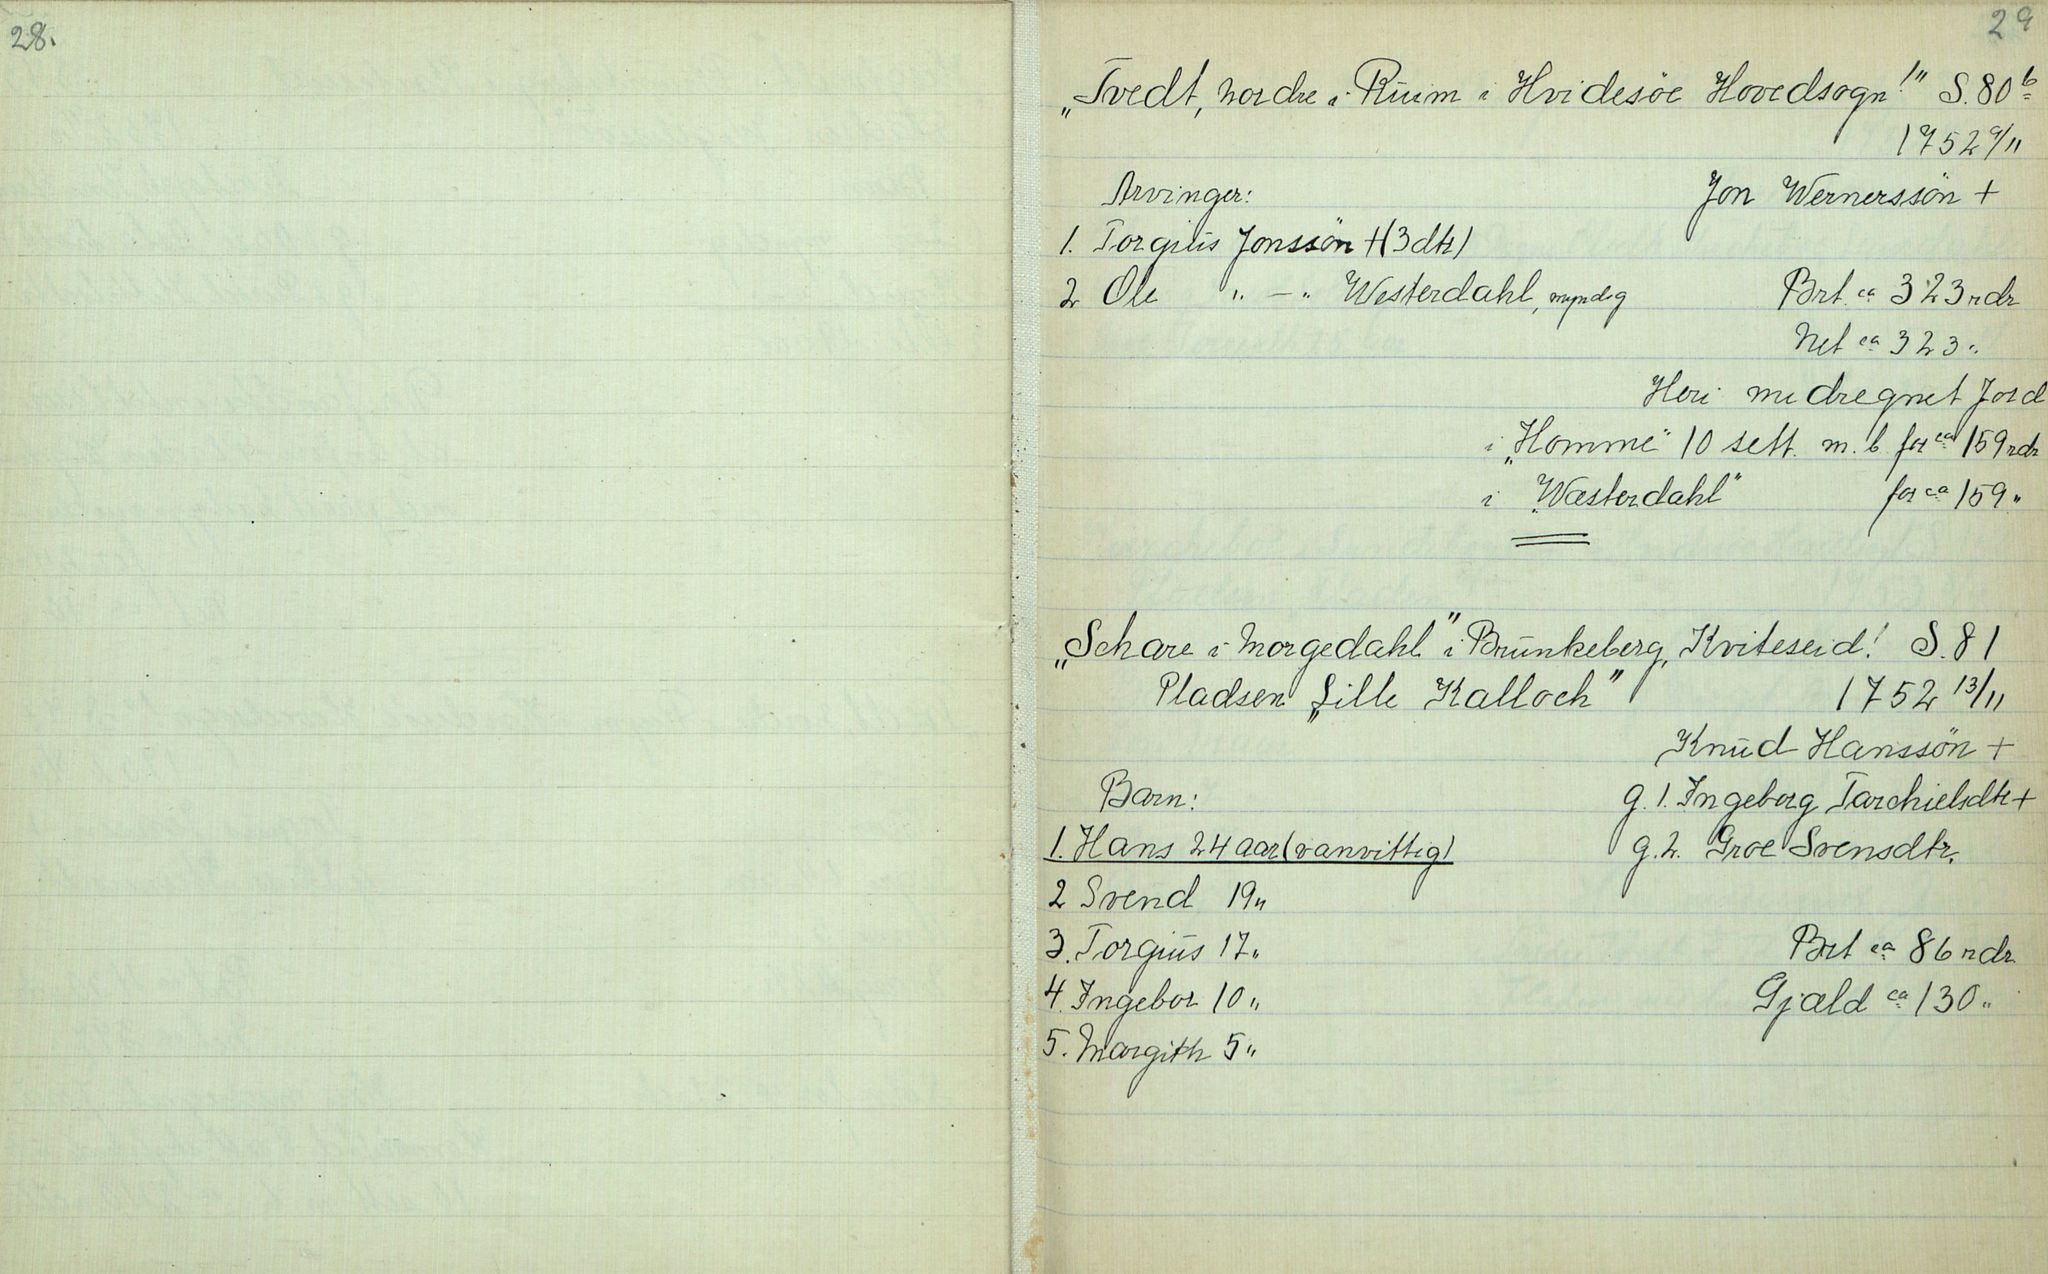 28.
29
„Tvedt, nordre i Ruum i Hvidesöe Hovedsogn!" S. 80 b
1752 9/11
Arvinger:
Jon Wernerssön +
1. Torgius Jonssön + (3 dtr)
2 Ole " — " Westerdahl, myndig
Brt. ca 323 rdr
Net ca 323 "
Heri medregnet Jord
i „Homme" 10 sett. m. b. for ca 159 rdr
i „Wæsterdahl" for ca 159 "
„Schare i Morgedahl" i Brunkeberg, Kviteseid! S. 81
Pladsen „Lille Kalloch"
1752 13/11
Knud Hanssön +
Barn:
g. 1. Ingeborg Tarchielsdtr +
1. Hans 24 aar (vanvittig)
g. 2. Groe Svensdtr.
2 Svend 19 "
3. Torgius 17 "
Brt ca 86 rdr
4. Ingebor 10 "
Gjæld ca 130 "
5. Margith 5 "